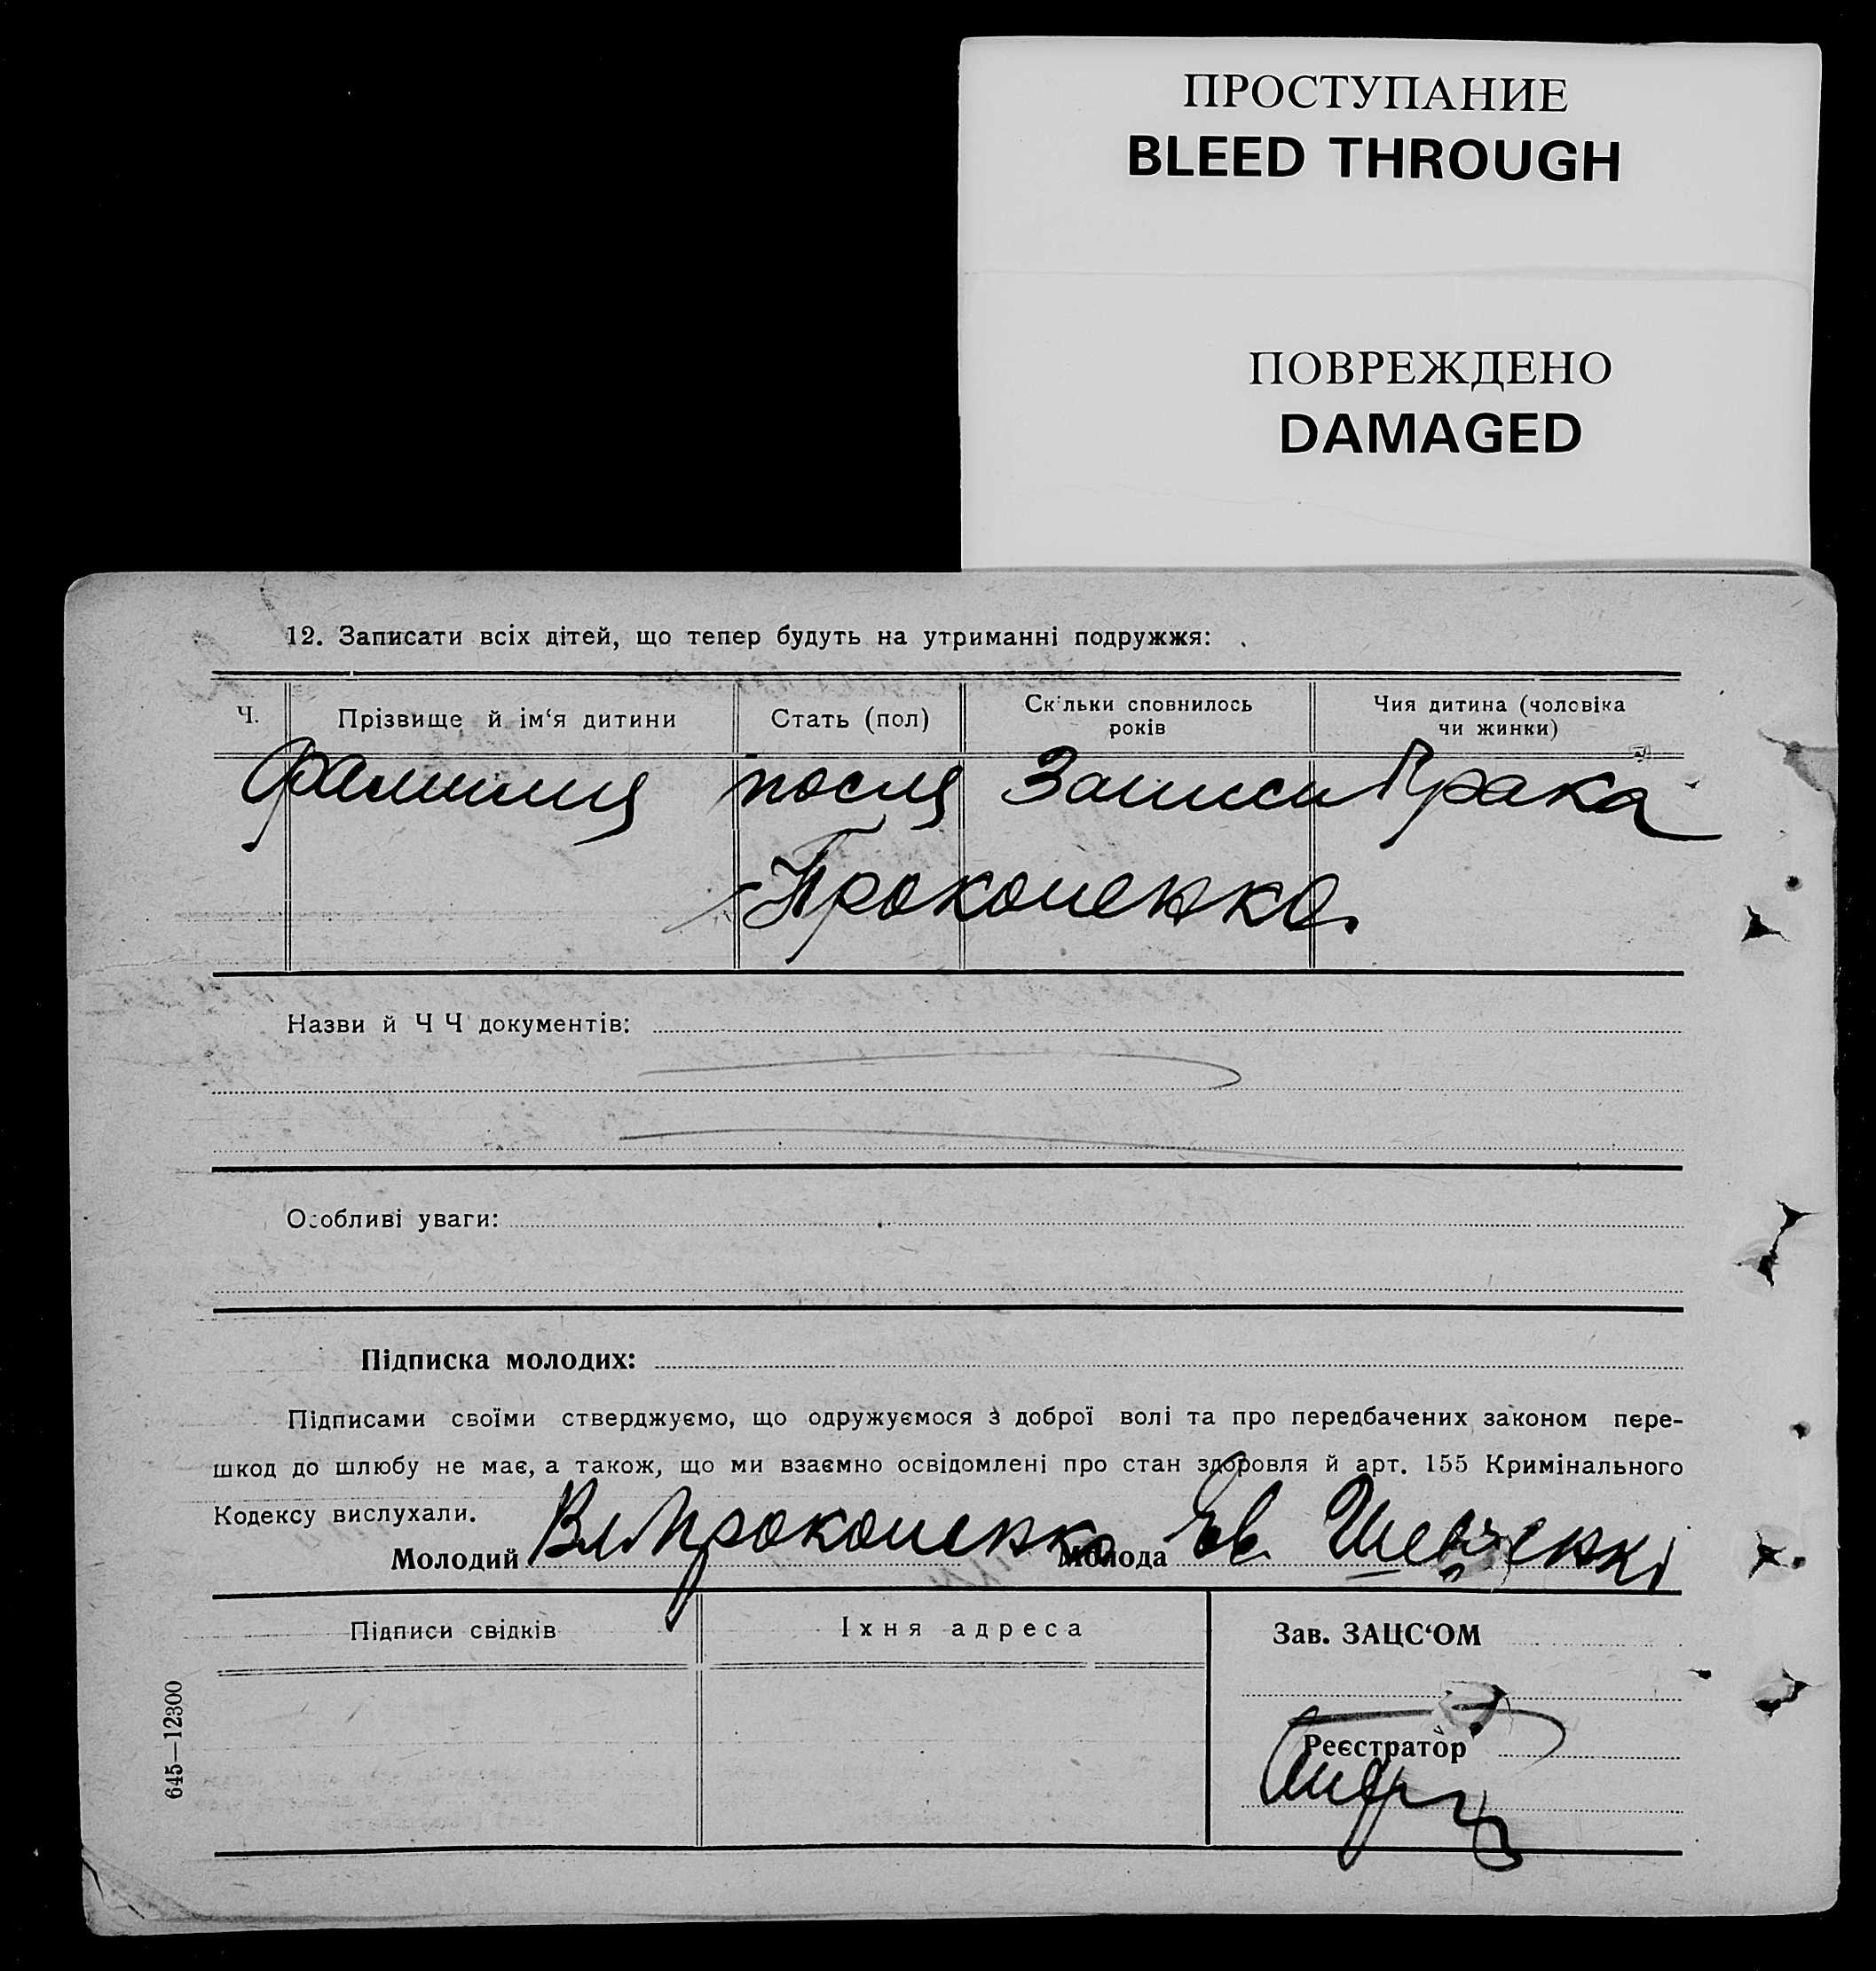 ПРОСТУПАНИЕ
BLEED THROUGH
ПОВРЕЖДЕНО
DAMAGED
12. Записати всіх дітей, що тепер будуть на утриманні подружжя:
Ч.
Прізвище й ім‘я дитини
Стать (пол)
Скільки сповнилось
років
Чия дитина (чоловіка
чи жинки)
Фамилия после Записи Брака
Прокопенко.
Назви й Ч Ч документів:
Особливі уваги:
Підписка молодих:
Підписами своїми стверджуємо, що одружуємося з доброї волі та про передбачених законом пере-
шкод до шлюбу не має, а також, що ми взаємно освідомлені про стан здоровля й арт. 155 Кримінального
Кодексу вислухали.
Молодий Вл Прокопенко Молода Ев. Шевченко
Підписи свідків
Іхня адреса
Зав. ЗАЦС‘ОМ
Реєстратор
645—12300